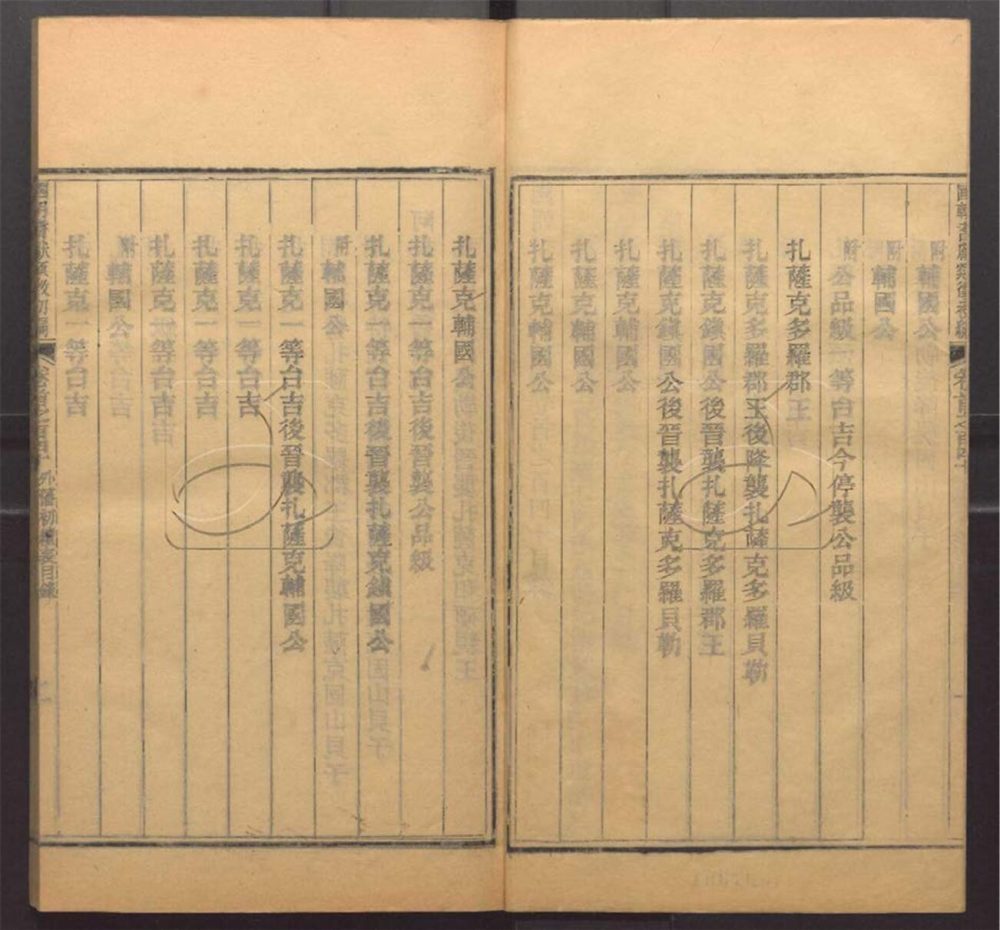 附
輔國公
附
輔國公
附
公品級一等台吉今停襲公品級
扎薩克多羅郡王
扎薩克多羅郡王後降襲扎薩克多羅貝勒
扎薩克鎮國公後晉襲扎薩克多羅郡王
扎薩克鎮國公後晉襲扎薩克多羅貝勒
扎薩克輔國公
扎薩克輔國公
扎薩克輔國公
扎薩克輔國公
扎薩克一等台吉後晉襲公品級
扎薩克一等台吉後晉襲扎薩克鎮國公
附
輔國公
扎薩克一等台吉後晉襲扎薩克輔國公
扎薩克一等台吉
扎薩克一等台吉
扎薩克一等台吉
附
輔國公
扎薩克一等台吉